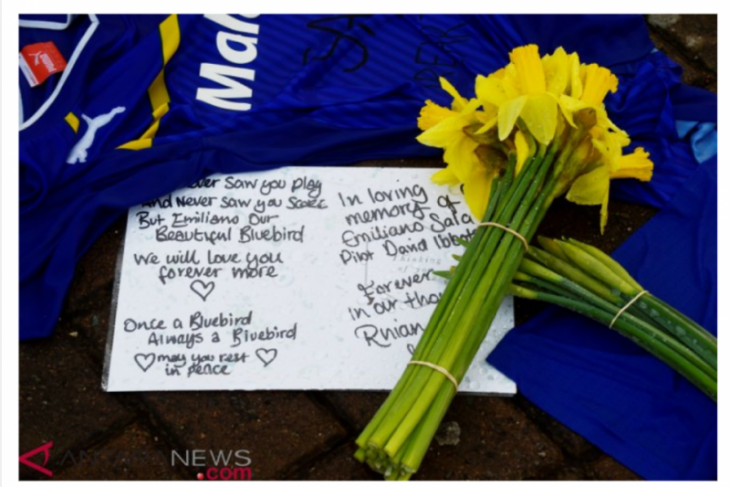 Mal
ver Saw you play
And Never saw you Score
But Emiliano Our
Beautiful Bluebird
We will love you
forever more
Once a Bluebird
Always a Bluebird
may you rest
in peace
In loving
memory of
Emiliano Sala
Pilot David Ibbot
Forever
in our thou
Rhian
ANTARANEWS
.com